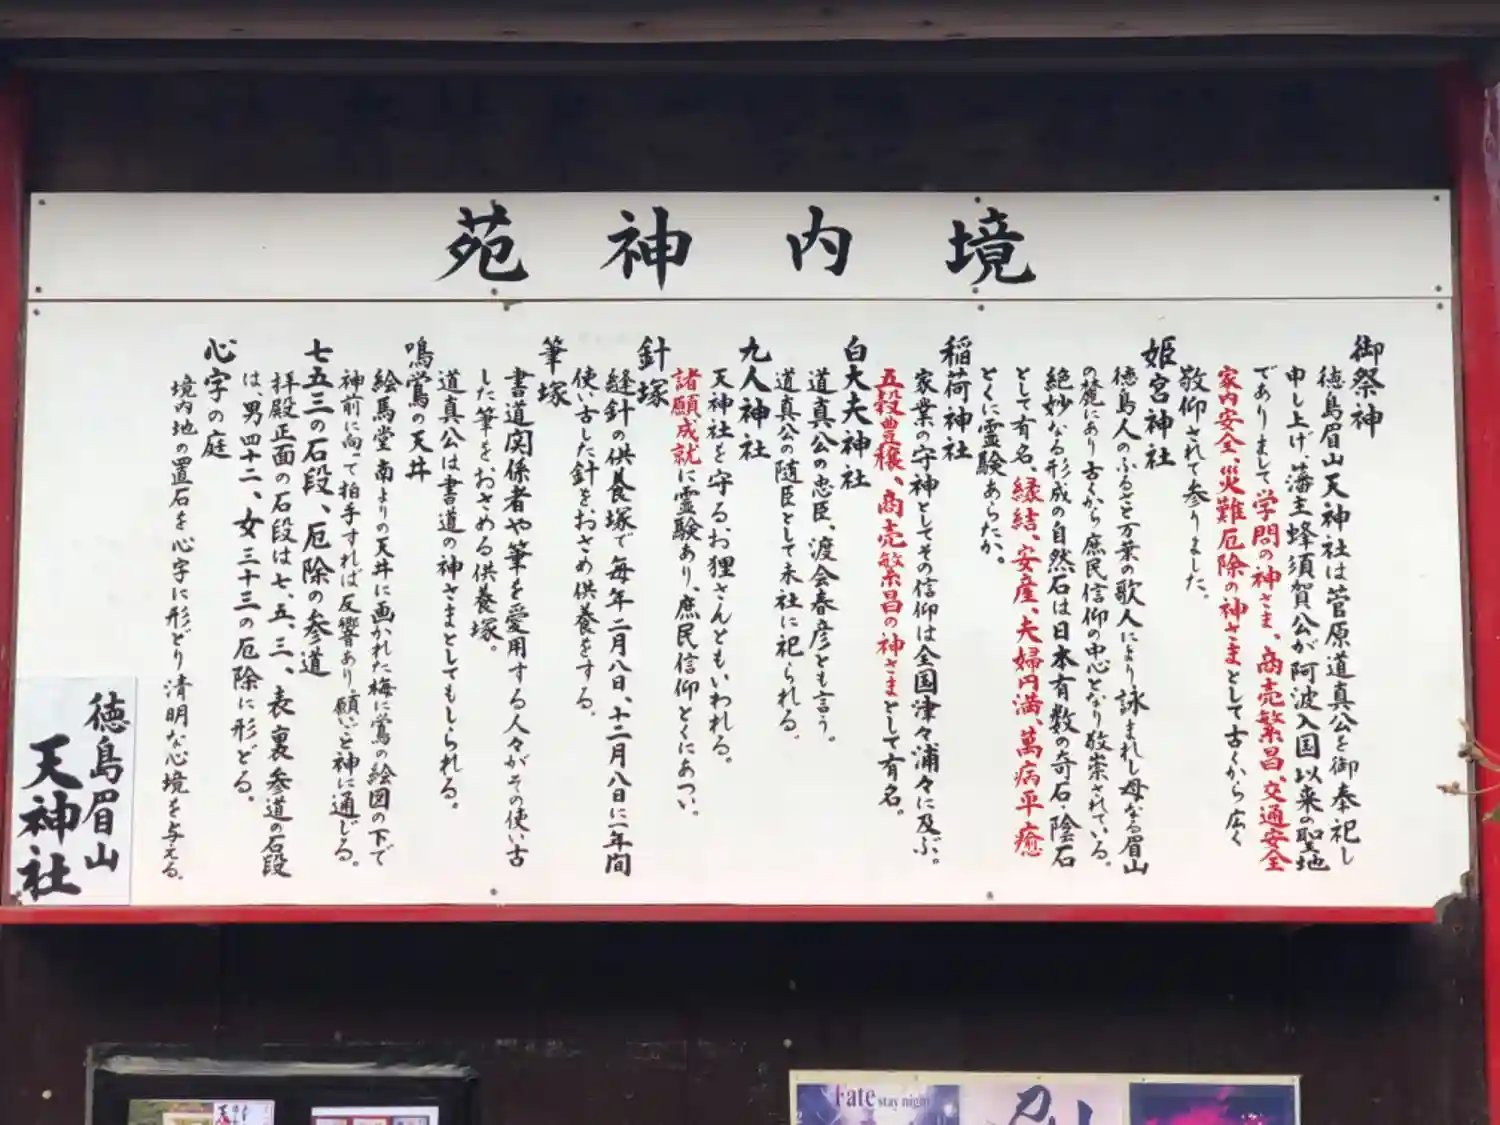 境内神苑
御祭神
徳島眉山天神社は菅原道真公を御奉祀し
申し上げ、藩主蜂須賀公が阿波入国以来の聖地
でありまして学問の神さま、商売繁昌、交通安全
家内安全、災難厄除の神さまとして古くから広く
敬仰されて参りました。
姫宮神社
徳島人のふるさと万葉の歌人により詠まれし母なる眉山
の麓にあり古くから庶民信仰の中心となり敬崇されている。
絶妙なる形成の自然石は日本有数の奇石・陰石
として有名、縁結、安産、夫婦円満、萬病平癒
とくに霊験あらたか。
稲荷神社
家業の守神としてその信仰は全国津々浦々に及ぶ。
五穀豊穣、商売繁昌の神さまとして有名。
白大夫神社
道真公の忠臣、渡会春彦とも言う。
道真公の随臣として末社に祀られる。
九人神社
天神社を守る、お狸さんともいわれる。
諸願成就に霊験あり、庶民信仰とくにあつい。
針塚
縫針の供養塚で毎年二月八日、十二月八日に一年間
使い古した針をおさめ供養をする。
筆塚
書道関係者や筆を愛用する人々がその使い古
した筆をおさめる供養塚。
道真公は書道の神さまとしてもしられる。
鳴鴬の天井
絵馬堂南よりの天井に画かれた梅に鴬の絵図の下で
神前に向って拍手すれば反響あり願いごと神に通じる。
七五三の石段、厄除の参道
拝殿正面の石段は七、五、三、表裏参道の石段
は、男四十二、女三十三の厄除に形どる。
心字の庭
境内地の置石を心字に形どり清明な心境を与える。
徳島眉山
天神社
Fate stay night